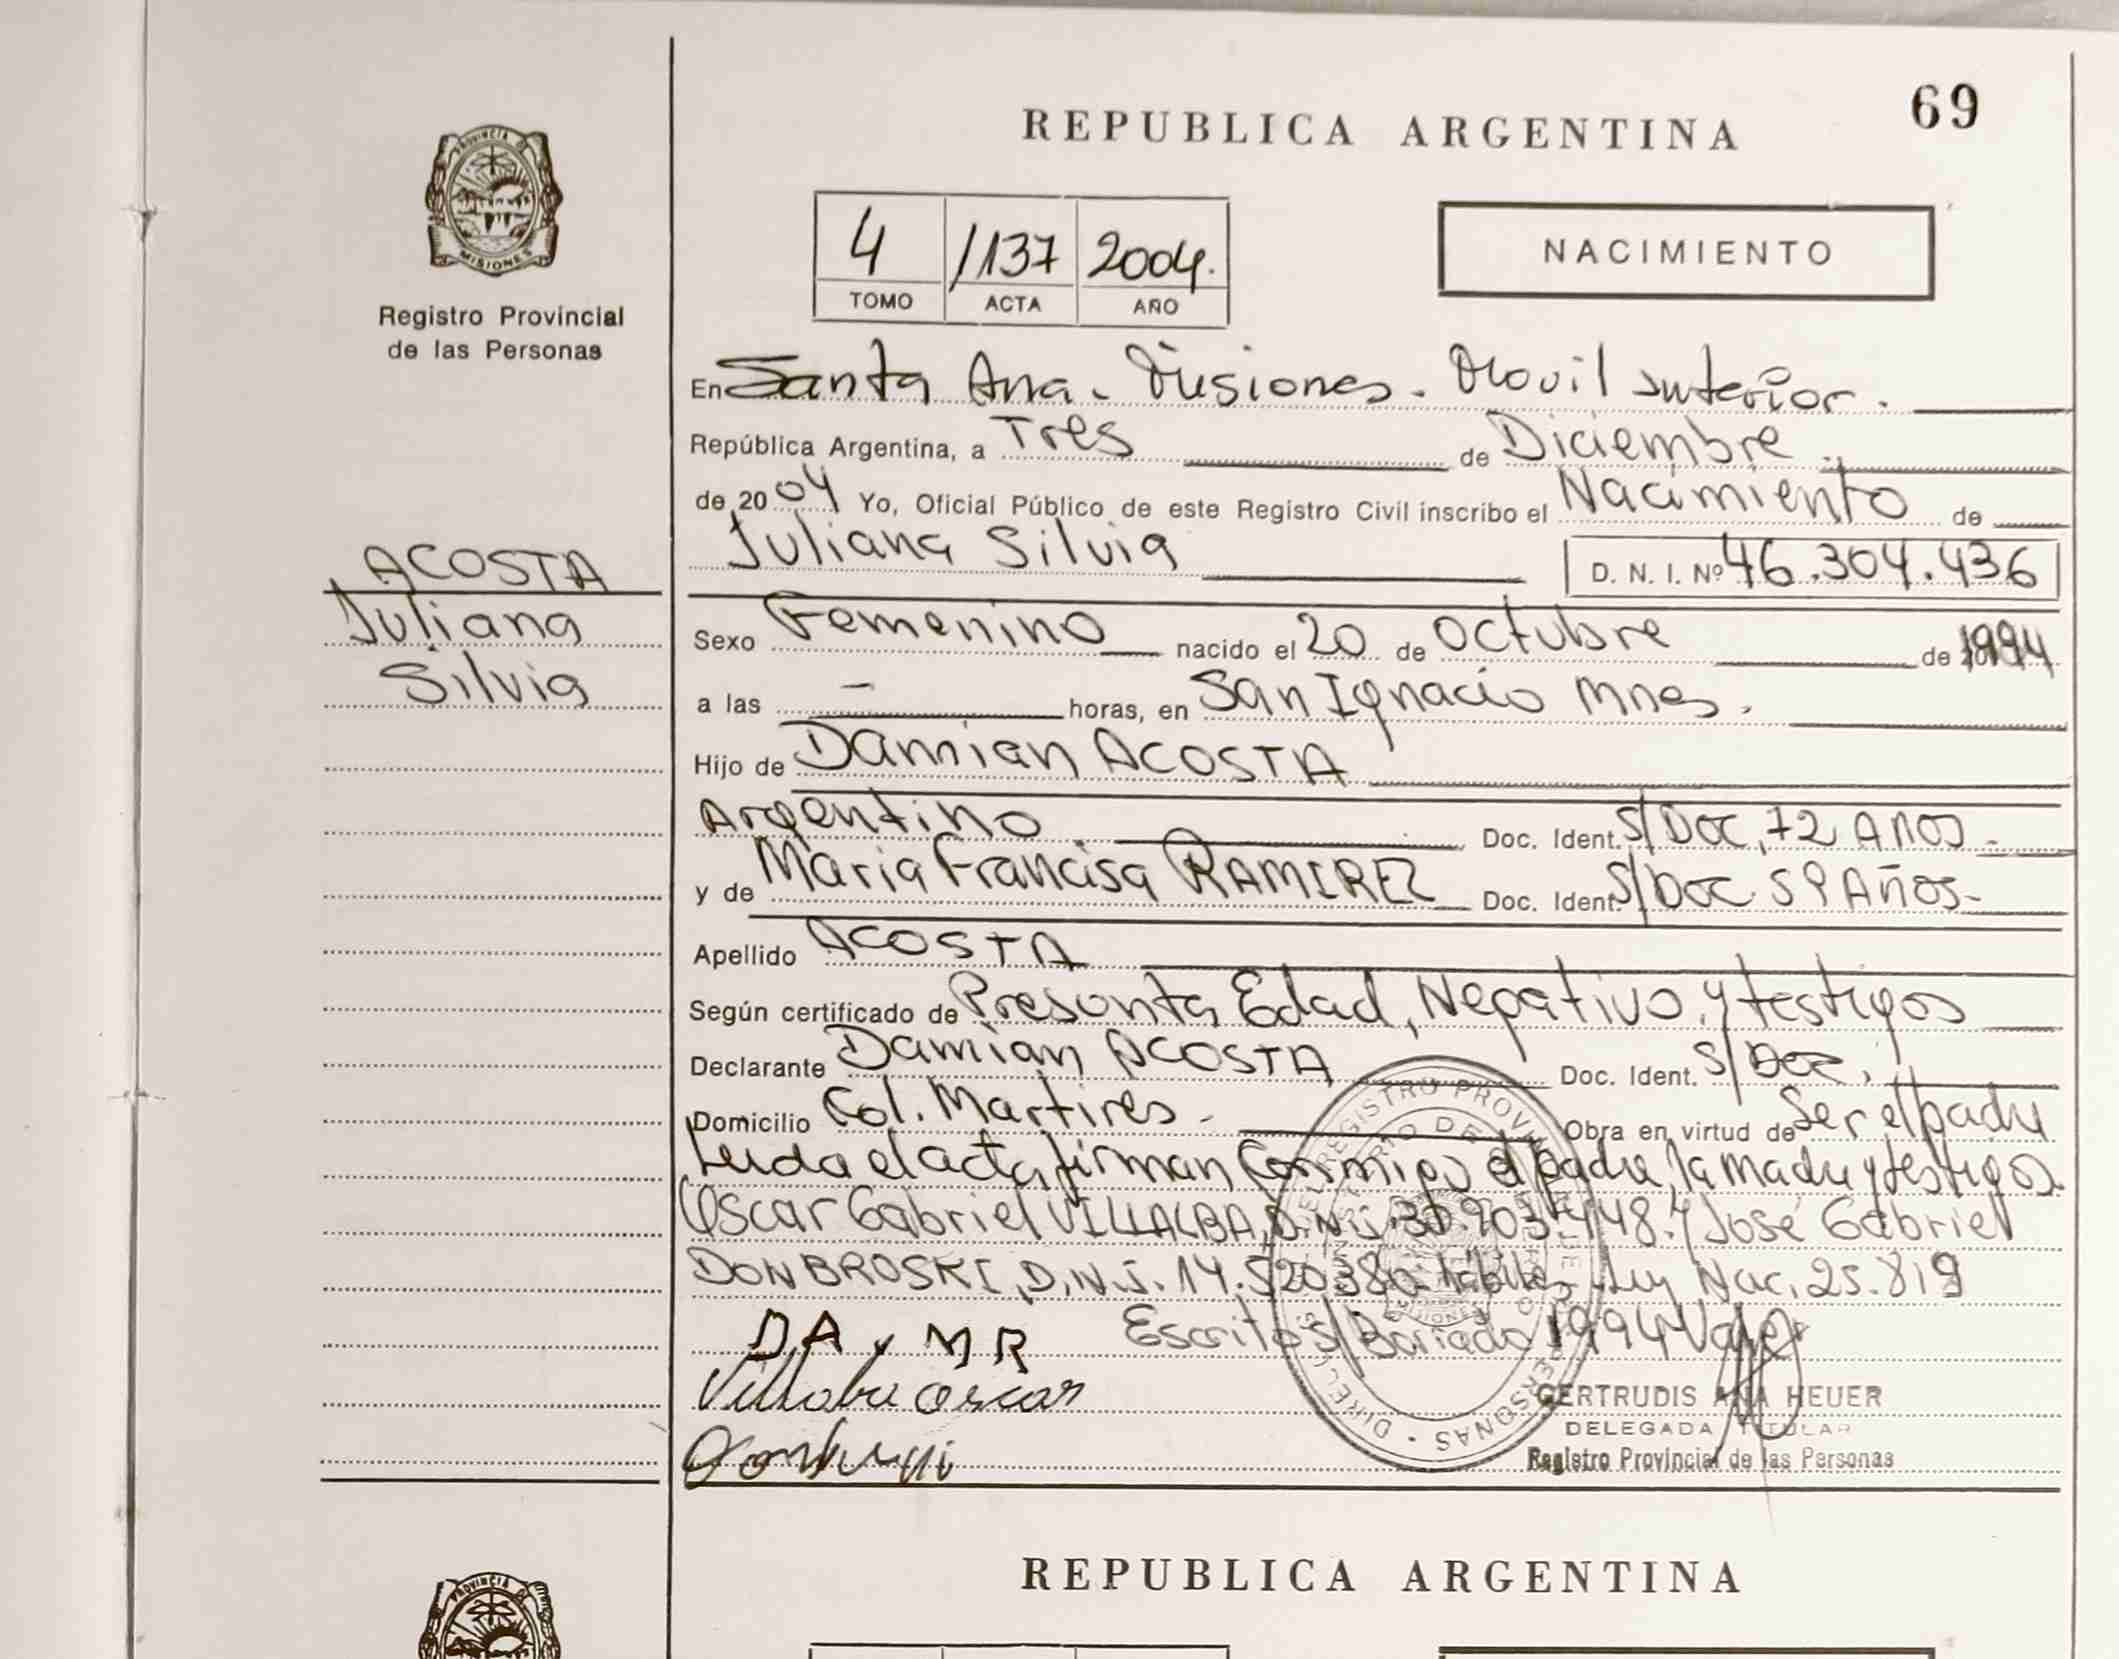 69
REPUBLICA ARGENTINA
PROVINCIA DE
MISIONES
Registro Provincial
de las Personas
4 /137 2004.
TOMO ACTA AÑO
NACIMIENTO
En Santa Ana - Misiones - Movil Interior.
República Argentina, a Tres de Diciembre
de 2004 Yo, Oficial Público de este Registro Civil inscribo el Nacimiento de
Juliana Silvia D. N. I. Nº 46.304.436
ACOSTA
Juliana
Silvia
Sexo Femenino nacido el 20 de Octubre de 1994
a las - horas, en San Ignacio Mnes.
Hijo de Damian ACOSTA
Argentino Doc. Ident. S/Doc, 72 Años -
y de Maria Francisa RAMIREZ Doc. Ident. S/Doc. 59 Años -
Apellido ACOSTA
Según certificado de Presonta Edad, Negativo, y testigos
Declarante Damian ACOSTA Doc. Ident. S/Doc,
Domicilio Col. Martires - Obra en virtud de Ser el padre
Leida el acta firman Conmigo el padre, la madre y testigos
Oscar Gabriel VILLALBA, D.N.I. 30.903.448. y José Gabriel
DONBROSKI, D.N.I. 14.520380 habiles Ley Nac, 25.819
DA y MR Escrito s/Boriado 1994 Vale
Villalba oscar
GERTRUDIS ANA HEUER
DELEGADA TITULAR
Registro Provincial de las Personas
REPUBLICA ARGENTINA
PROVINCIA DE